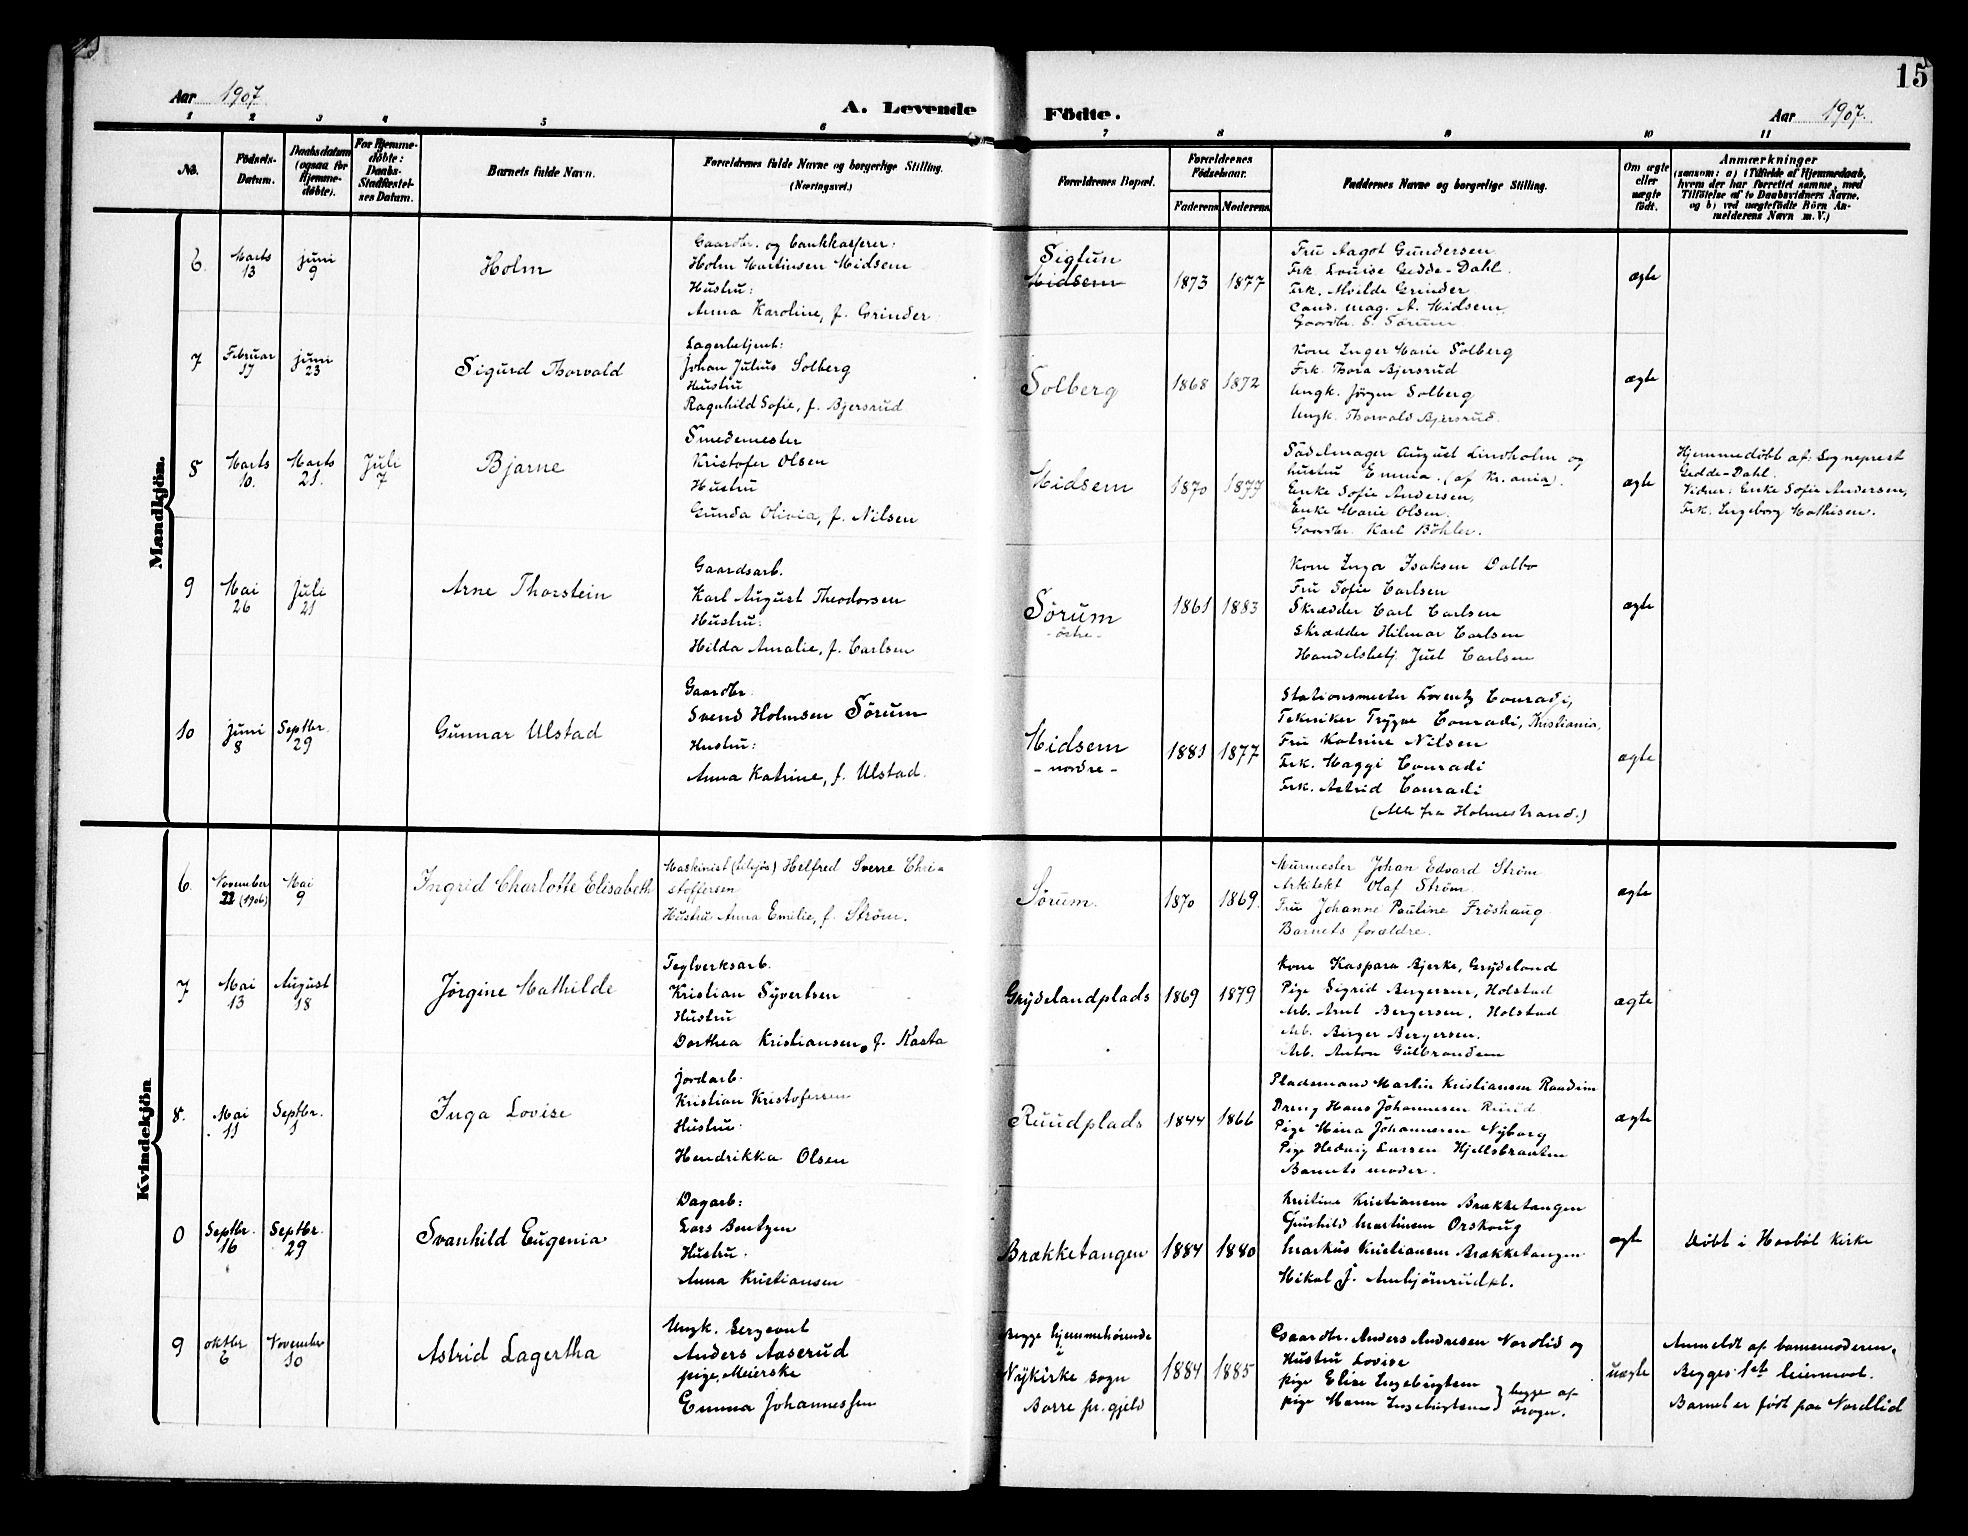 15
Aar 1907
A. Levende Födte.
Aar 1907.
1 2 3 4 5 6 7 8 9 10 11
No.
Födsels-
Datum.
Daabsdatum
(ogsaa for
Hjemme-
döbte).
For Hjemme-
döbte:
Daabs-
Stadfæstel-
ses Datum.
Barnets fulde Navn.
Forældrenes fulde Navne og borgerlige Stilling.
(Næringsvei.)
Forældrenes Bopæl.
Forældrenes
Födselsaar.
Faderens
Moderens
Faddernes Navne og borgerlige Stilling.
Om ægte
eller
uægte
födt.
Anmærkninger
(saasom: a) i Tilfælde af Hjemmedaab,
hvem der har forrettet samme, med
Tilföielse af to Daabsvidners Navne.
og b) ved uægtefödte Börn An-
melderens Navn m. V.)
Mandkjön.
6.
Marts
13
Juni
9
Holm
Gaardbr. og bankkasserer:
Holm Martinsen Midsem
Hustru:
Anna Karoline, f. Grinder
Sigtun
Midsem
1873
1877
Fru Aagot Gundersen
Frk. Louise Gedde-Dahl.
Frk. Alvilde Grinder
Cand. mag. A. Midsem
Gaardbr. S. Sörum
ægte
7
Februar
17
Juni
23
Sigurd Thorvald
Lagerbetjent:
Johan Julius Solberg
Hustru
Ragnhild Sofie, f. Bjersrud
Solberg
1868
1872
Kone Inger Marie Solberg
Frk. Thora Bjersrud
Ungk. Jörgen Solberg
Ungk. Thorvald Bjersrud.
ægte
8
Marts
10.
Marts
21.
Juli
7
Bjarne
Smedemester
Kristofer Olsen
Hustru
Gunda Olivia, f. Nilsen
Midsem
1870
1877
Sadelmager August Lindholm og
hustru Emma. (af Kr.ania).
Enke Sofie Andersen,
Enke Marie Olsen.
Gaardbr. Karl Böhler.
ægte
Hjemmedöbt af: Sogneprest
Gedde-Dahl.
Vidner: Enke Sofie Andersen,
Frk. Ingeborg Mathisen.
9
Mai
26
Juli
21
Arne Thorstein
Gaardsarb.
Karl August Theodorsen
Hustru:
Hilda Amalie, f. Carlsen
Sörum
-östre-
1861
1883
Kone Inga Isaksen Dalbo
Fru Sofie Carlsen
Skrædder Carl Carlsen
Skrædder Hilmar Carlsen
Handelsbetj. Juel Carlsen
ægte
10
Juni
8
Septbr.
29
Gunnar Ulstad
Gaardbr.
Svend Holmsen Sörum
Hustru:
Anna Katrine, f. Ulstad.
Midsem
-nordre-
1881
1877
Stationsmester Lorentz Conradi,
Tekniker Trygve Conradi, Kristiania,
Fru Katrine Nilsen
Frk. Maggi Conradi
Frk. Astrid Conradi
(Alle fra Holmestrand.)
ægte
Kvindekjön
6.
November
22 (1906)
Mai
9
Ingrid Charlotte Elisabeth
Maskinist (tilsjös) Helfred Sverre Chri-
stoffersen
Hustru Anna Emilie, f. Ström.
Sörum.
1870
1869.
Murmester Johan Edvard Ström
Arkitekt Olaf Ström.
Fru Johanne Pauline Fröshaug
Barnets forældre.
ægte
7
Mai
13
August
18
Jörgine Mathilde
Teglverksarb.
Kristian Syvertsen
Hustru
Dorthea Kristiansen, f. Kasta
Grydelandplads
1869
1879
Kone Kaspara Bjerke, Grydeland
Pige Sigrid Bergersen, Holstad
Arb. Arnt Bergersen, Holstad
Arb. Birger Bergersen.
Arb. Anton Gulbrandsen
ægte
8.
Mai
11
Septbr.
1
Inga Lovise
Jordarb.
Kristian Kristofersen
Hustru.
Hendrikka Olsen
Ruudplads
1844
1866
Pladsmand Martin Kristiansen Raadim
Dreng Hans Johannesen Ruud
Pige Mina Johannesen Nyborg
Pige Hedvig Larsen Hjellsbraaten
Barnets moder.
ægte
0
Septbr.
16
Septbr.
29
Svanhild Eugenia
Dagarb:
Lars Bentzen
Hustru.
Anna Kristiansen
Brækketangen
1884
1880
Kristine Kristiansen Brækketangen
Gunhild Martinsen Orskoug
Markus Kristiansen Brækketangen
Mikal J.
ægte
Döbt i Haaböl kirke
9
Oktbr
6
November
10
Astrid Lagertha
Ungk. Sergeant
Anders Aaserud
pige, Meierske
Emma Johannessen
Begge hjemmehörende
i
Nykirke sogn
Borre pr.gjeld
1884
1885
Gaardbr. Anders Andresen Nordlid og
Hustru Lovise
pige Elise Ingebrigtsen
pige Marn Ingebrigtsen } begge af
Frogn.
uægte
Anmeldt af barnemoderen.
Begges 1ste leiermaal.
Barnet er födt paa Nordlid